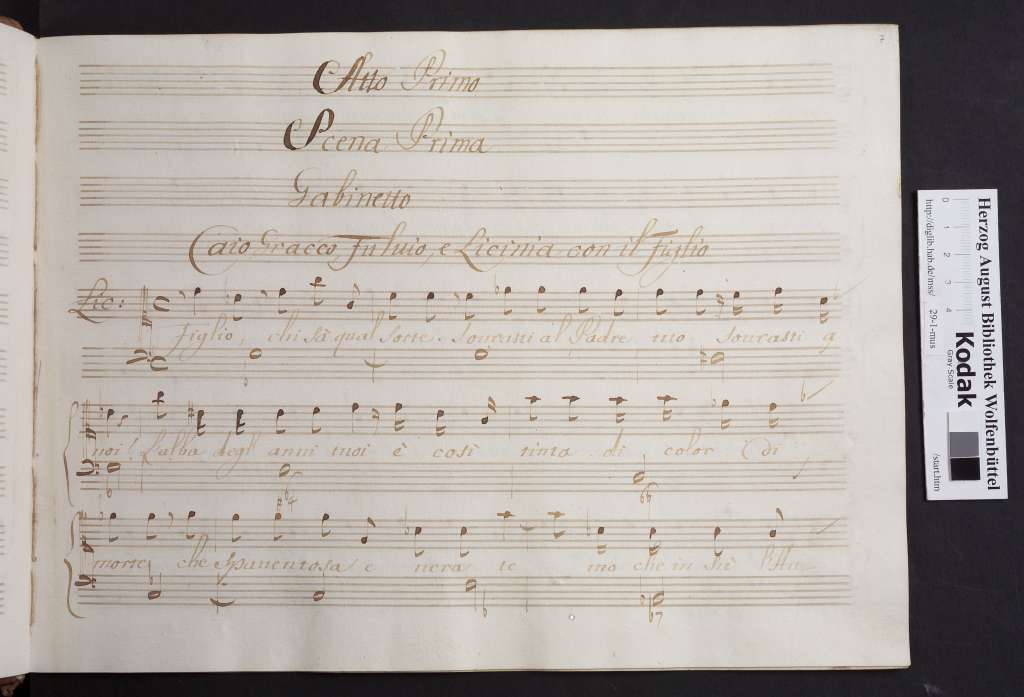 7
Atto Primo
Scena Prima
Gabinetto
Caio Gracco, Fuluio, e Licinia con il Figlio
Lic:
Figlio, chi sà qual sorte sourasti al Padre tuo sourasti a
noi! L'alba degl' anni tuoi è così tinta di color di
morte che spauentosa e nera te mo che in sè
Herzog August Bibliothek Wolfenbüttel
Kodak
Gray Scale
0 1 2 3 4
http://diglib.hab.de/mss/ 29-1-mus /start.htm